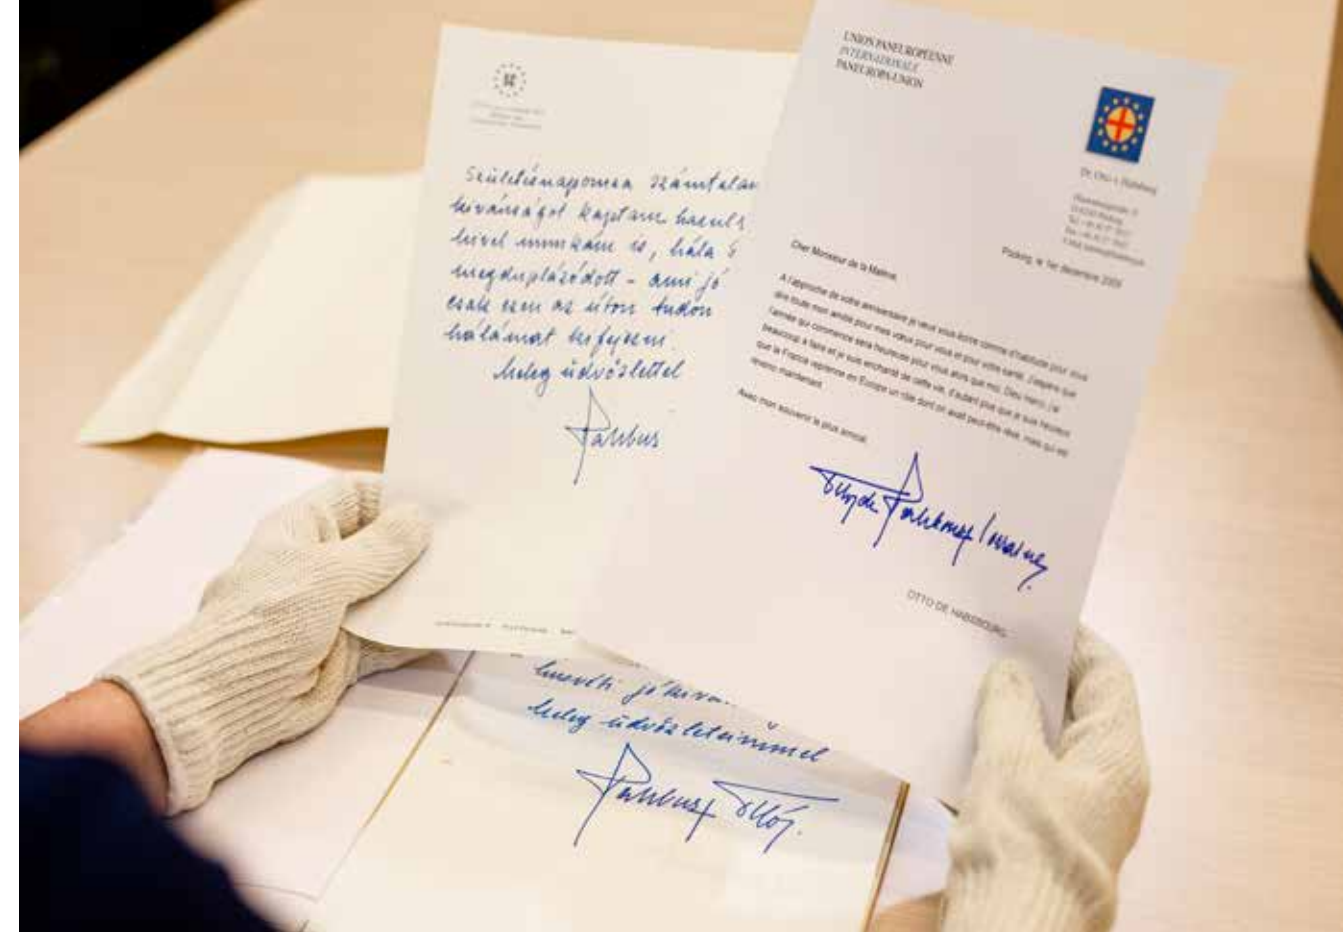 Születésnapomra számtalan
kívánságot kaptam
kivel munkám is, hála
megduplázódott - ami jó
csak ezen az úton tudom
hálámat kifejezni.
Meleg üdvözlettel
Habsburg
UNION PANEUROPÉENNE
INTERNATIONALE
PANEUROPA-UNION
Dr. Otto v. Habsburg
Pöcking, le 1er décembre
Cher Monsieur de la Malène,
A l'approche de votre anniversaire je veux vous écrire comme d'habitude pour vous
dire toute mon amitié pour mes vœux pour vous et pour votre santé. J'espère que
l'année qui commence sera heureuse pour vous alors que moi, Dieu merci, j'ai
beaucoup à faire et je suis enchanté de cette vie, d'autant plus que je suis heureux
que la France reprenne en Europe un rôle dont on avait peut-être rêvé, mais qui est
revenu maintenant.
Avec mon souvenir le plus amical.
Otto de Habsbourg Lorraine
OTTO DE HABSBOURG
Meleg üdvözleteimmel
Habsburg Ottó.